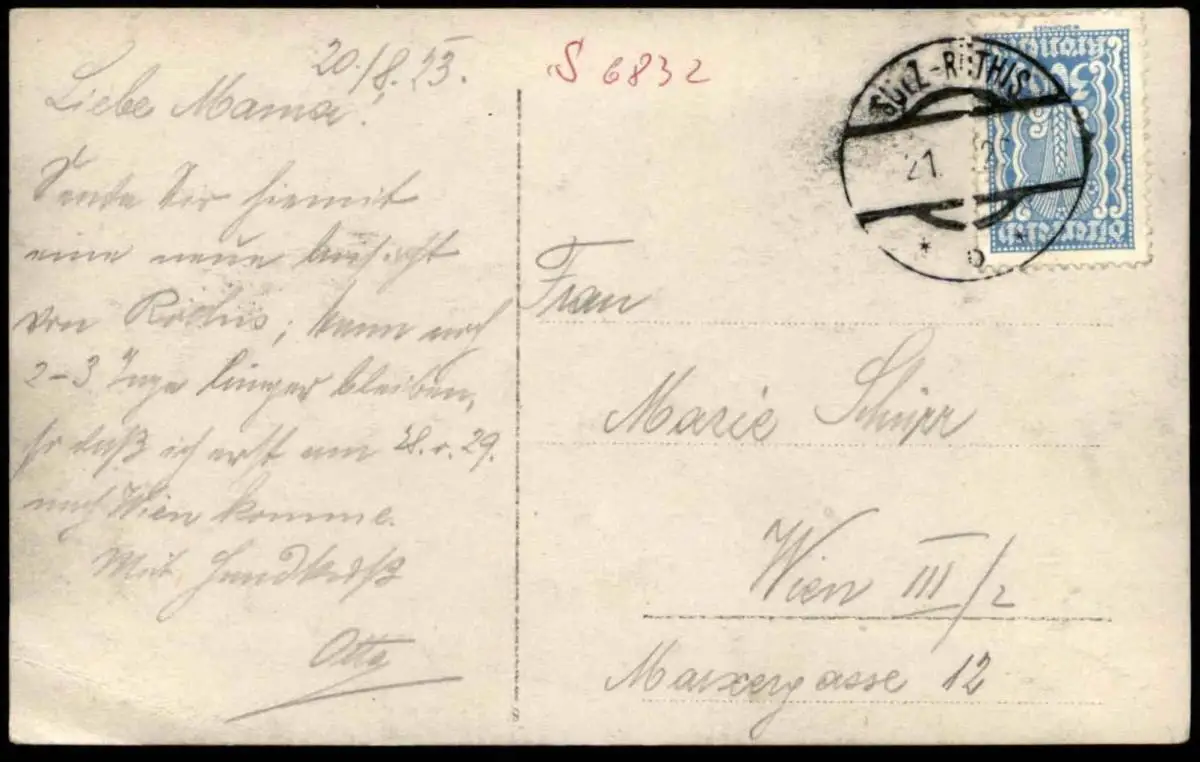 20./8.23.
Liebe Mama!
Sende Dir hiermit
eine neue Ansicht
von Röthis; kann noch
2-3 Tage länger bleiben,
so daß ich erst am 28. o. 29.
nach Wien komme.
Mit Handkuß
Otto
S 6832
SULZ-RÖTHIS
21.
* b *
Kronen
Österreich
Frau
Marie Schipr
Wien III/2
Marxergasse 12